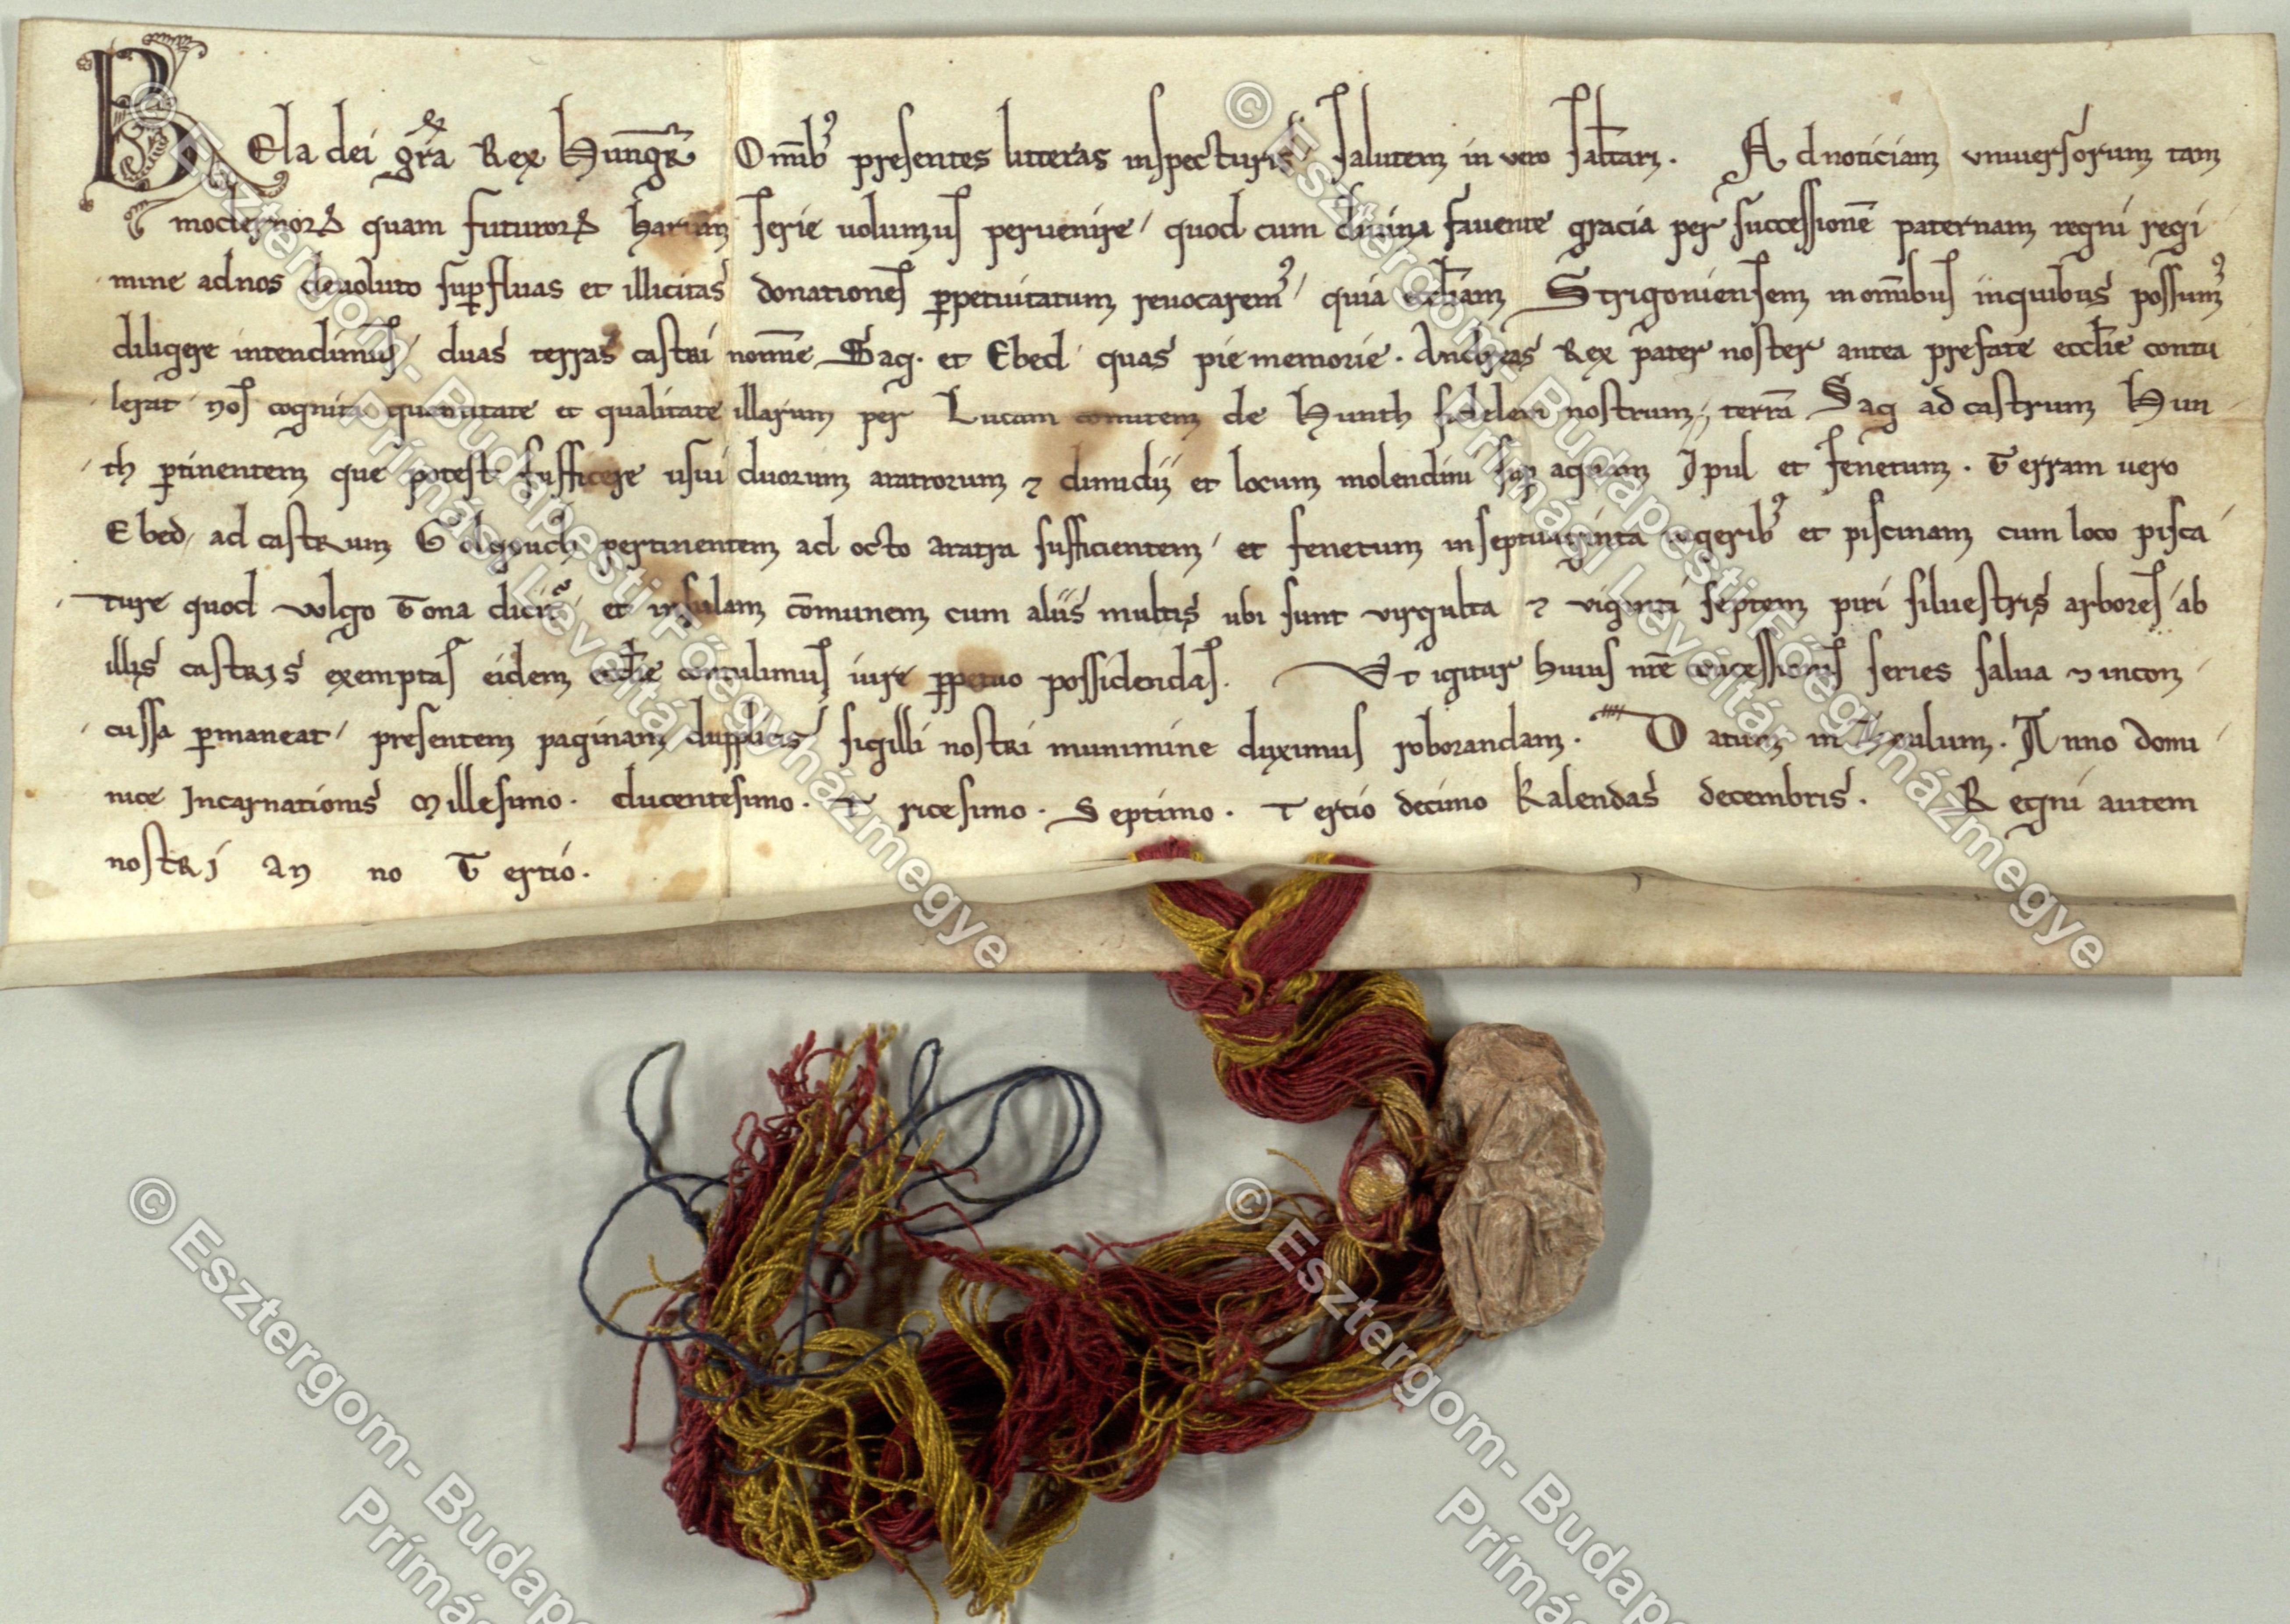 Bela dei gr̃a Rex Hungar̃ Om̃ib᷒ presentes litteras inspecturis salutem in vero salutari. Ad noticiam vniuersorum tam
modernorꝝ quam futurorꝝ harum serie uolumus peruenire / quod cum diuina fauente gracia per successionẽ paternam regni regi
mine ad nos deuoluto suꝑfluas et illicitas donationes ꝑpetuitatum reuocarem᷒ / quia eccl̃iam Strigoniensem in om̃ibus inquibus possum᷒
diligere intendimus / duas terras castri nomine Sag. et Ebed quas pie memorie. Andreas Rex pater noster antea prefate eccl̃ie contu
lerat nos cognita quantitate et qualitate illarum per Lucam comitem de Hunth fidelem nostrum / terrã Sag ad castrum Hun
th ꝑtinentem que potest sufficere usui duorum aratrorum ⁊ dimidij et locum molendini suꝑ aquam Ipul et fenetum. Terram uero
Ebed / ad castrum Golgouch pertinentem ad octo aratra sufficientem / et fenetum in septuaginta iugerib᷒ et piscinam cum loco pisca
ture quod volgo Tona dicit᷑ / et insulam cõmunem cum aliis multis ubi sunt virgulta ⁊ viginti septem piri siluestris arbores / ab
illis castris exemptas eidem eccl̃ie contulimus iure ꝑpetuo possidendas. Vt igitur huius nr̃e concessionis series salua ⁊ incon
cussa ꝑmaneat / presentem paginam dupplicis sigilli nostri munimine duximus roborandam. Datum in Anno domi
nice Incarnationis Millesimo. ducentesimo. Tricesimo. Septimo. Tertio decimo Kalendas decembris. Regni autem
nostri anno Tertio.
© Esztergom- Budapesti Főegyházmegye
Prímási Levéltár
© Esztergom- Budapesti Főegyházmegye
Prímási Levéltár
© Esztergom- Budapes
Prímás
© Esztergom- Budapes
Prímás